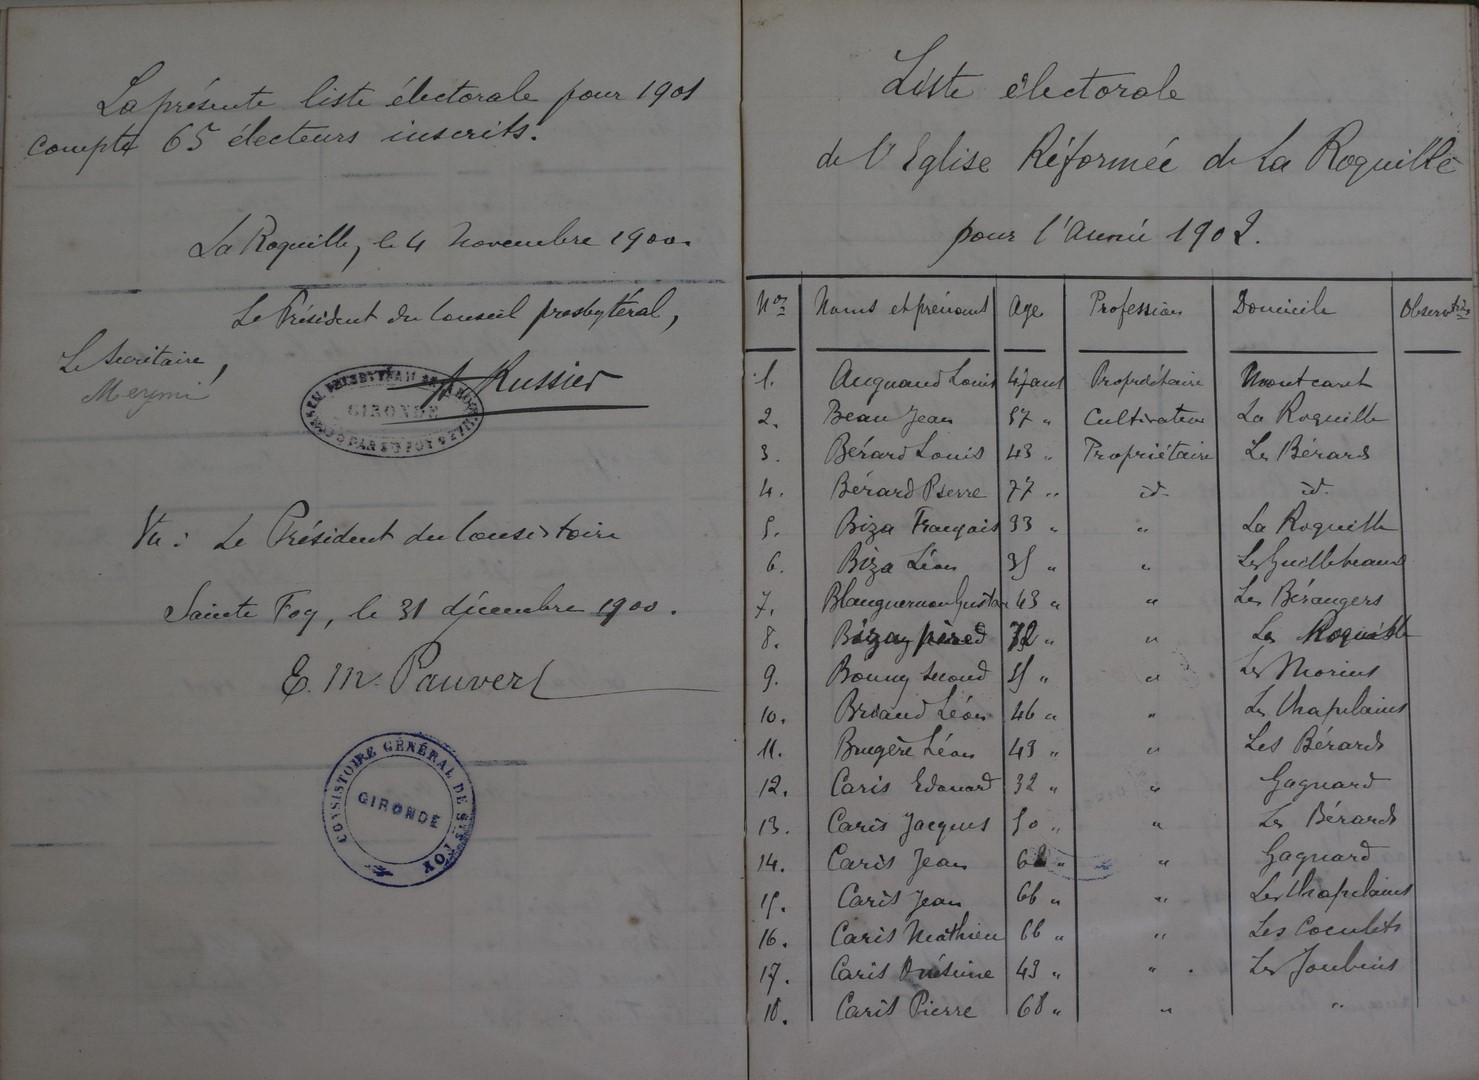 La présente liste électorale pour 1901
compte 65 électeurs inscrits.
La Roquille, le 4 Novembre 1900.
Le Président du Conseil presbytéral,
Le Secrétaire,
Russier
GIRONDE
Vu : Le Président du Consistoire
Sainte Foy, le 31 décembre 1900.
E. M. Pauvert
CONSISTOIRE GÉNÉRAL DE STE FOY
GIRONDE
Liste électorale
de l'Eglise Réformée de La Roquille
pour l'Année 1902.
Nos Noms et prénoms Age Profession Domicile Observtions
1. Louis 47 ans Propriétaire Montcaret
2. Beau Jean 57 " Cultivateur La Roquille
3. Bérard Louis 43 " Propriétaire Les Bérards
4. Bérard Pierre 77 " id. id.
5. Biza Français 33 " " La Roquille
6. Biza Léon 35 " "
7. 43 " " Les Bérangers
8. 72 " " La Roquille
9. Bonny second 55 " " Les Morins
10. Briand Léon 46 " " Les Chapelains
11. Brugère Léon 43 " " Les Bérards
12. Caris Edouard 32 " " Gagnard
13. Caris Jacques 50 " " Les Bérards
14. Caris Jean " " Gagnard
15. Caris Jean 66 " " Les Chapelains
16. Caris Mathieu 66 " " Les Coculets
17. Caris Onésime 43 " " Les Joubins
18. Caris Pierre 68 " " "